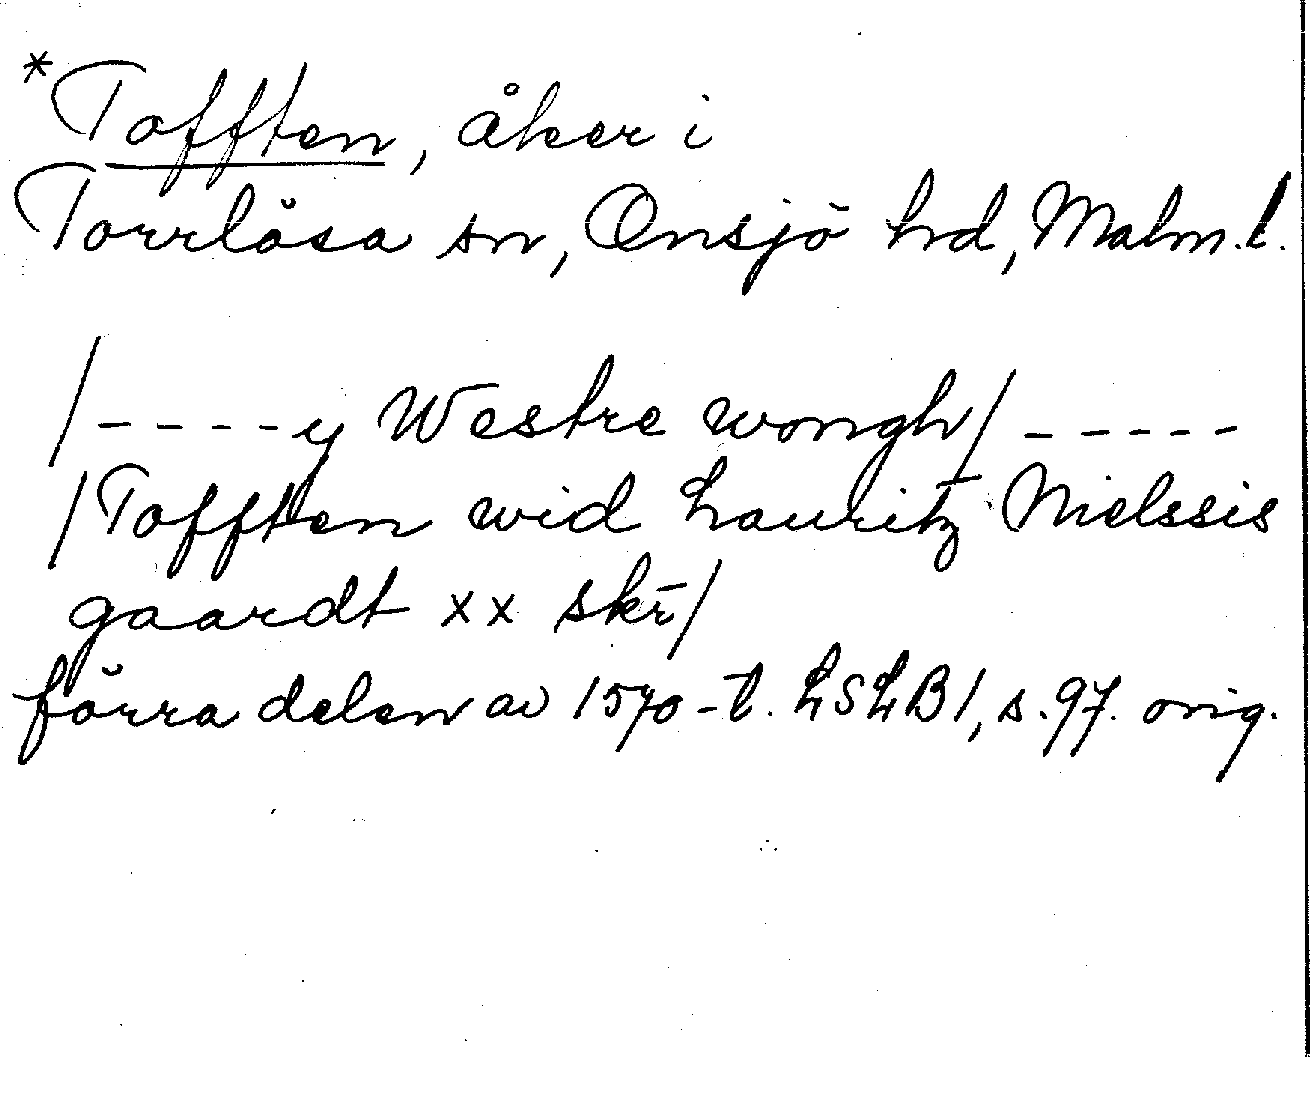 *Tofften, åker i
Torrlösa sn, Onsjö hd, Malm.l.
/-----y Westre wongh/ -----
/Tofften wid Lauritz Nielssis
gaardt xx skr̄/
förra delen av 1570-t. LSLB1, s.97. orig.